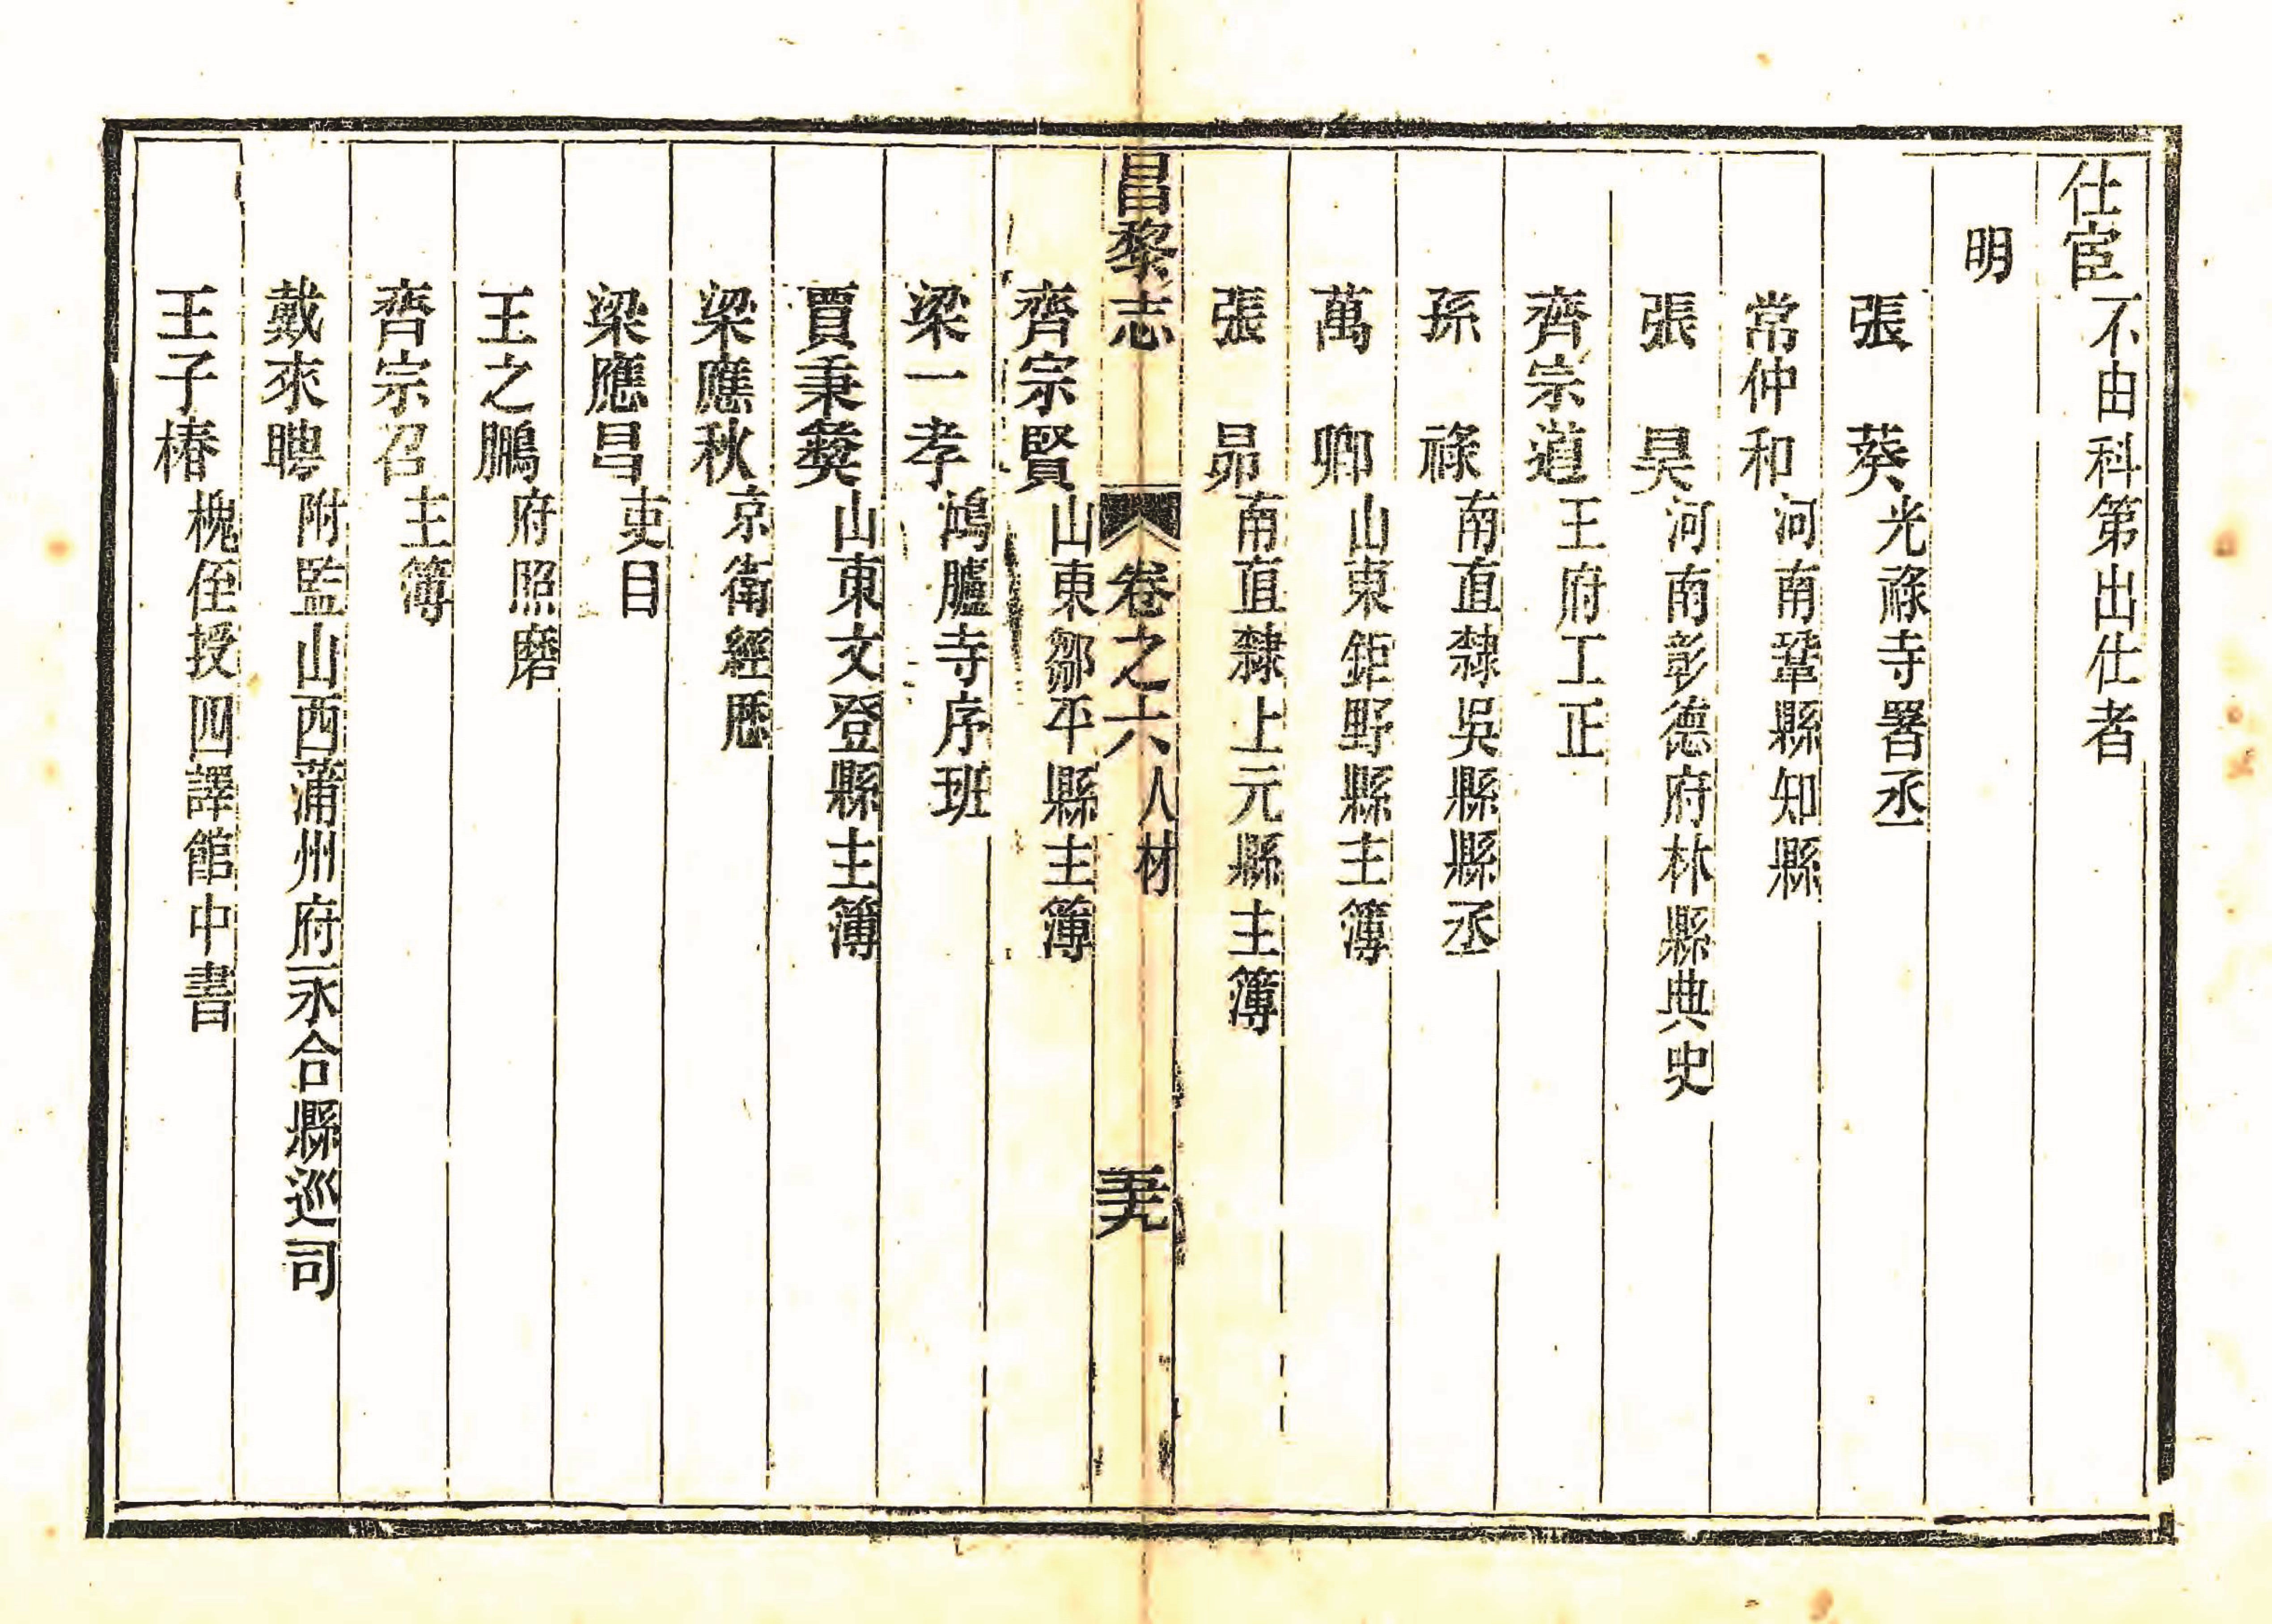 仕宦不由科第出仕者
明
張葵光祿寺署丞
常仲和河南鞏縣知縣
張昊河南彰德府林縣典史
齊宗道王府工正
孫祿南直隸吳縣縣丞
萬卿山東鉅野縣主簿
張昴南直隸上元縣主簿
昌黎志 卷之六人材 五十九
齊宗賢山東鄒平縣主簿
梁一孝鴻臚寺序班
賈秉彝山東文登縣主簿
梁應秋京衛經歷
梁應昌吏目
王之鵬府照磨
齊宗召主簿
戴來聘附監山西蒲州府永合縣巡司
王子椿槐侄授四譯館中書